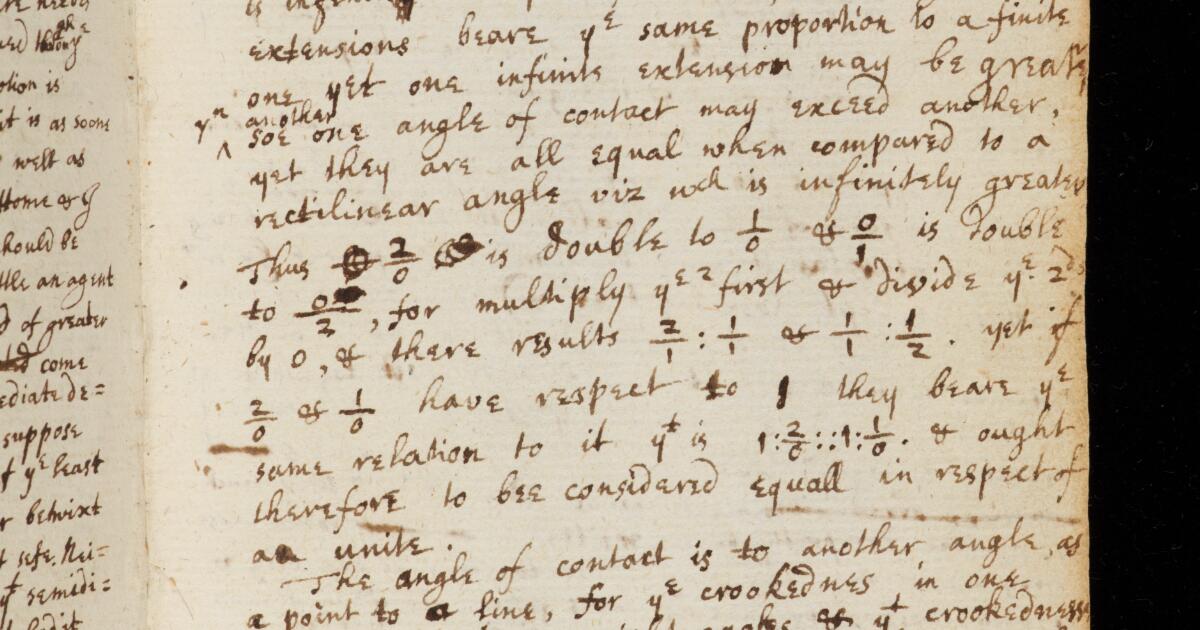 extensions beare yᵉ same proportion to a finite
one yet one infinite extension may be greater
yⁿ another
soe one angle of contact may exceed another,
yet they are all equal when compared to a
rectilinear angle viz wᶜʰ is infinitely greater
Thus 2/0 is double to 1/0 & 0/1 is double
to 0/2, for multiply yᵉ 2 first & divide yᵉ 2ᵈˢ
by 0, & there results 2/1 : 1/1 & 1/1 : 1/2. yet if
2/0 & 1/0 have respect to 1 they beare yᵉ
same relation to it yᵗ is 1:2/0::1:1/0. & ought
therefore to bee considered equall in respect of
an unite.
The angle of contact is to another angle, as
a point to a line, for yᵉ crookednes in one
& yᵗ crookednesse
otion is
it is as soone
welt as
should be
an agent
of greater
come
ediate de=
suppose
yᵉ least
betwixt
Nei=
semidi=